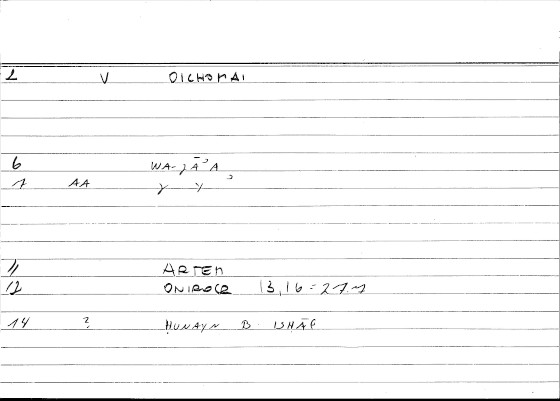 2 V OICHOMAI
6 WA-ǧĀʾA
7 AA ǧ Yʾ
11 ARTEM
12 ONIROCR 13,16 = 27-7
14 ? ḤUNAYN B ISḤĀQ